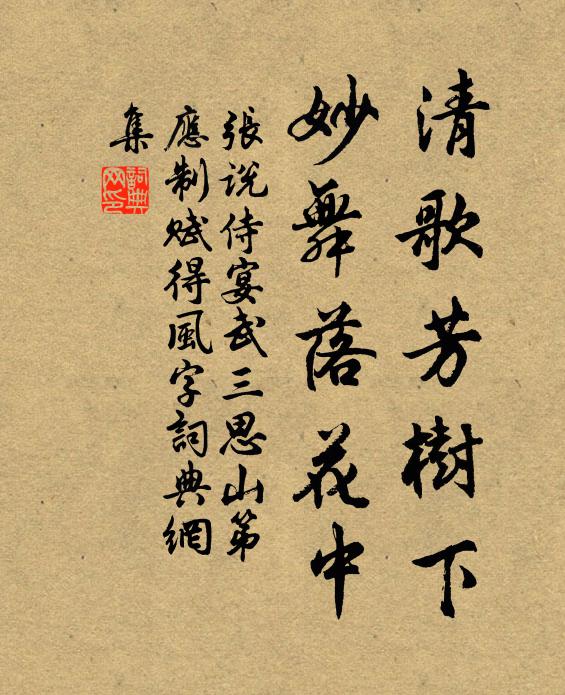 清歌芳樹下
妙舞落花中
張説侍宴武三思山第
應制賦得風字詞典網
集
詞典
网印